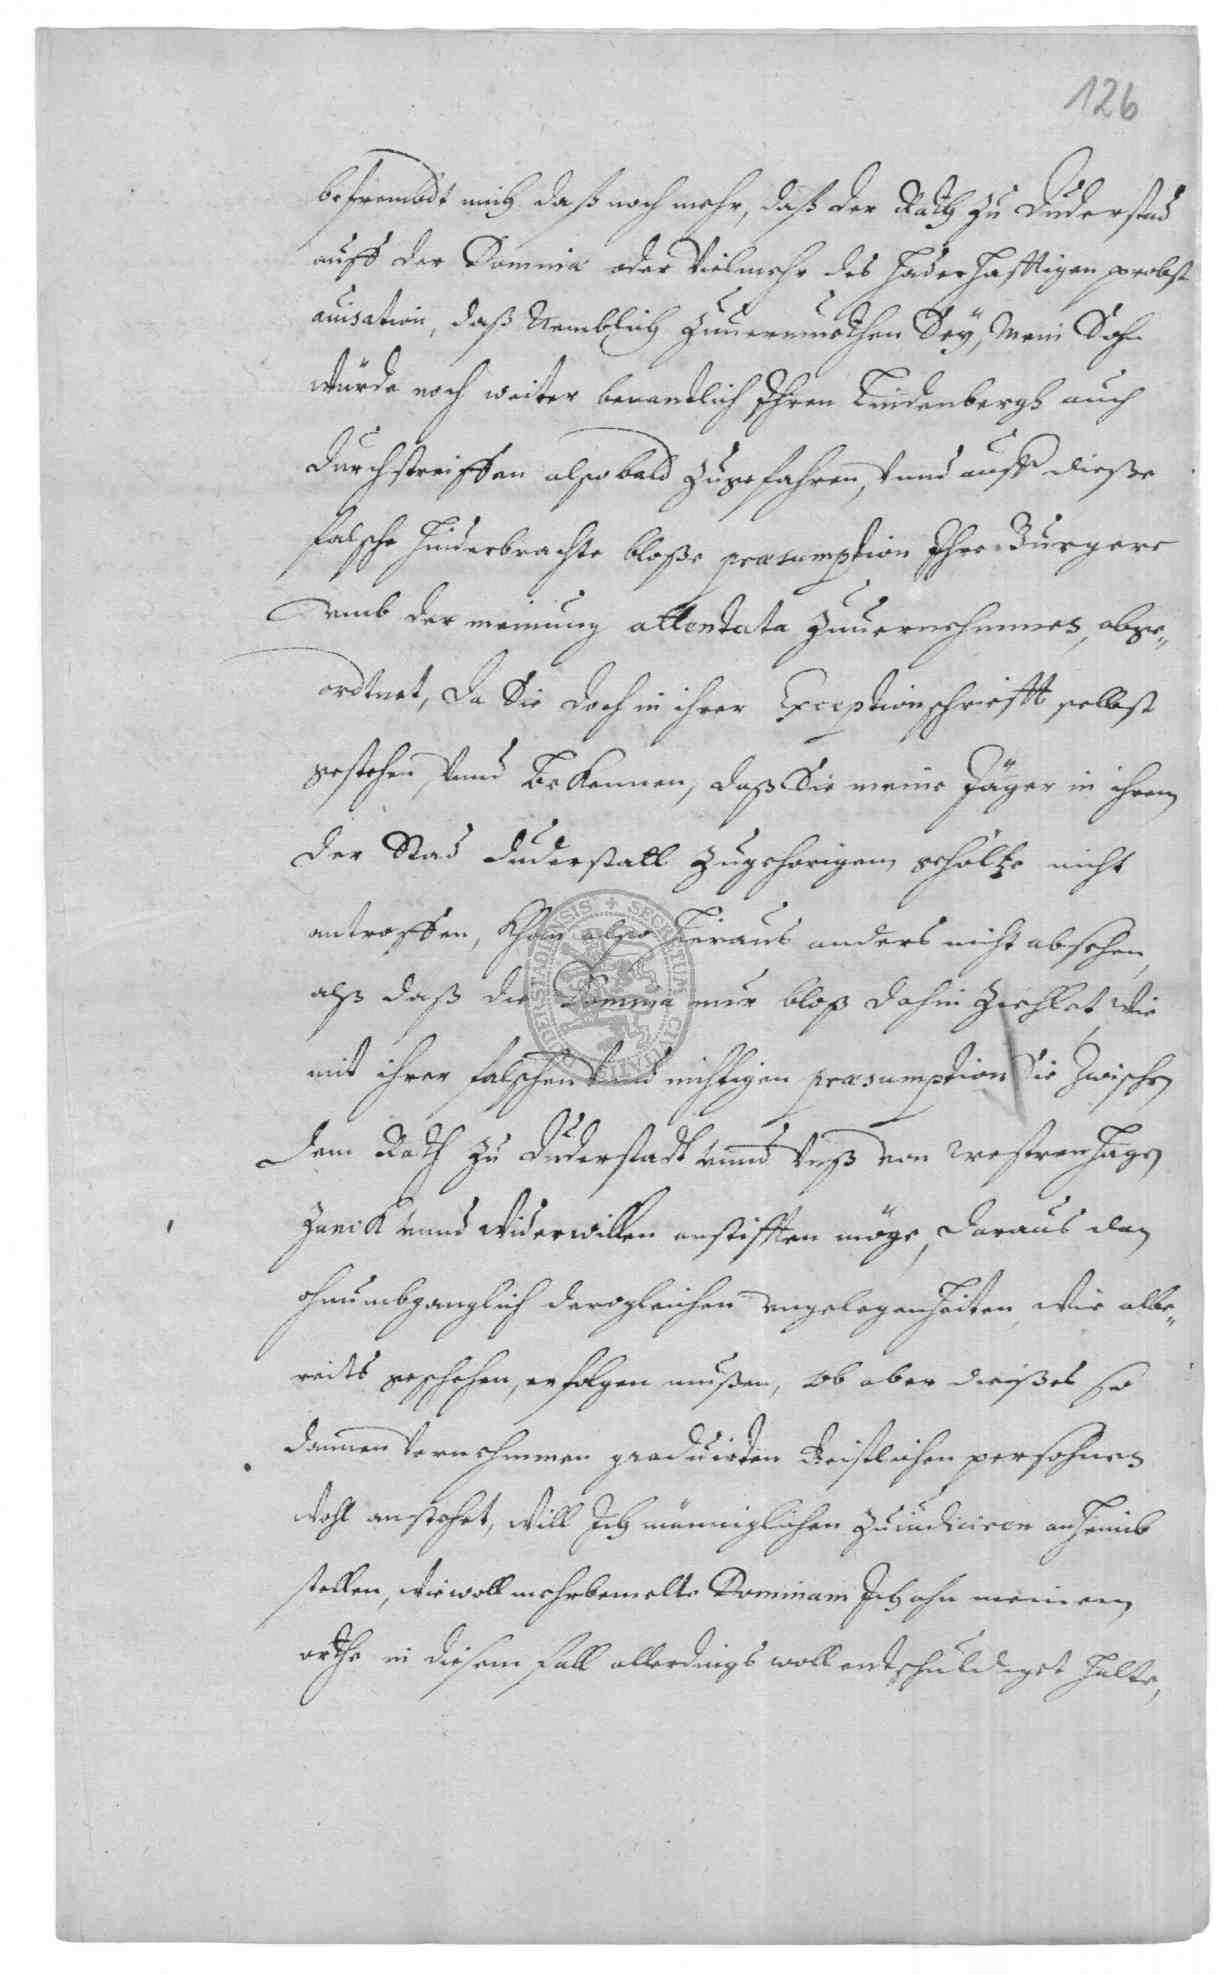 126
befrembdt mich daß noch mehr, daß der Rath zu Duderstad
auff der Domina oder vielmehr des haderhafftigen probst
auisation, daß Nemblich zuuermuthen Sey, Mein Sohn
würde noch weiter benantlich Ihren Lindenbergh auch
durchstreiffen alsobald zugefahren, vnnd auff dieße
falsche hinderbrachte bloße præsumption Ihre Burgere
vmb der meinung attentata zuuernehmmen, abge„
ordtnet, da Sie doch in ihrer Exceptionschriefft selbst
gestehen vnnd bekennen, daß Sie meine Jäger in ihrem
der Stad duderstatt zugehorigem geholtze nicht
antroffen, Khan also hieraus anders nicht absehen,
alß daß die Domina nur bloß dahin ziehlet, wie
mit ihrer falschen vnd nichtigen præsumption Sie zwischen
dem Rath zu Duderstadt vnnd vnß von westernhagen
zanck vnnd widerwillen anstifften möge, daraus dan
ohnumbganglich derogleichen vngelegenheiten wie albe„
reits geschehen, erfolgen mußen, Ob aber dießes so
dannen vornehmmen graduirten Geistlichen persohnen
wohl anstehet, will Ich männiglichen zu iudiciren anheimb
stellen, wiewoll mehrbemelte Dominam Ich ohn meinem
orthe in diesem fall allerdings woll entschuldiget halte,
SECRETUM